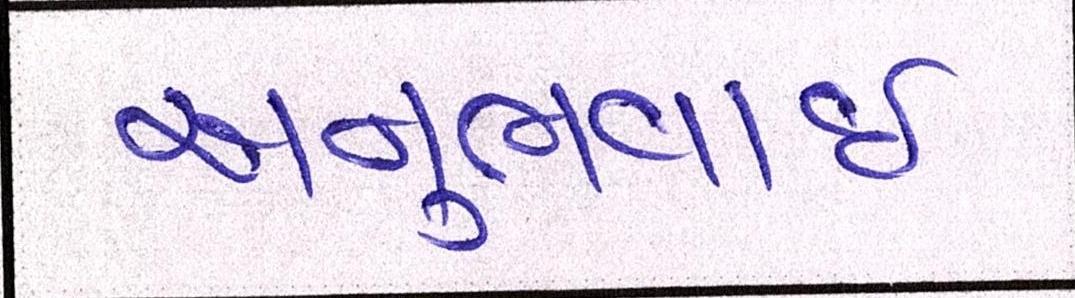 અનુભવાઈ